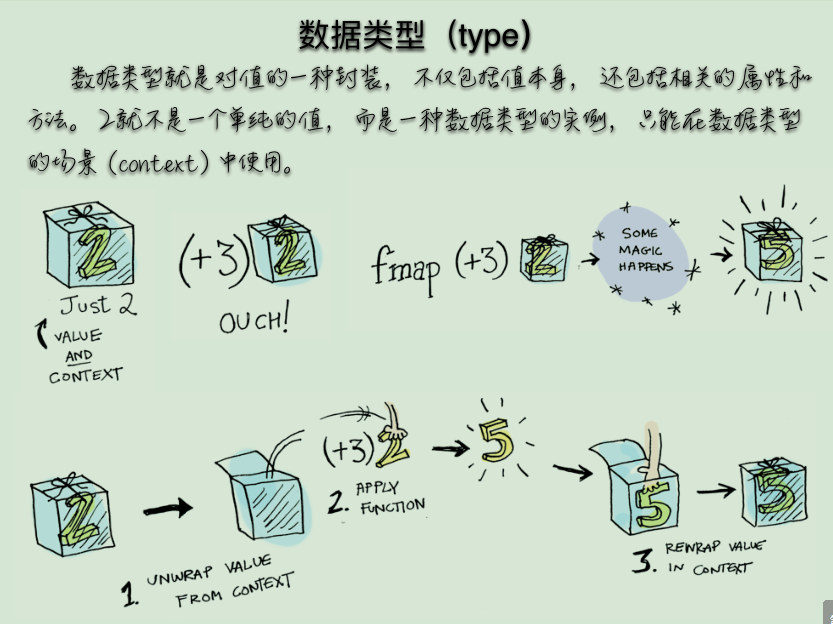 数据类型（type）
数据类型就是对值的一种封装，不仅包括值本身，还包括相关的属性和
方法。2就不是一个单纯的值，而是一种数据类型的实例，只能在数据类型
的场景（context）中使用。
2
Just 2
VALUE
AND
CONTEXT
(+3) 2
OUCH!
fmap (+3) 2
SOME
MAGIC
HAPPENS
5
2
1. UNWRAP VALUE
FROM CONTEXT
(+3) 2
2. APPLY
FUNCTION
5
5
3. REWRAP VALUE
IN CONTEXT
5